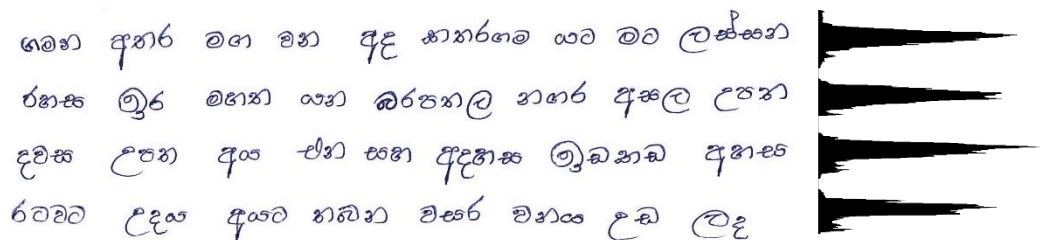 ගමන අතර මග වන අද කතරගම යට මට ලස්සන
රහස ඉර මහත යන බරපතල නගර අසල උපත
දවස උපත අය එන සහ අදහස ඉඩකඩ අහස
රටවට උදය අයට තබන වසර වනය උඩ ලද